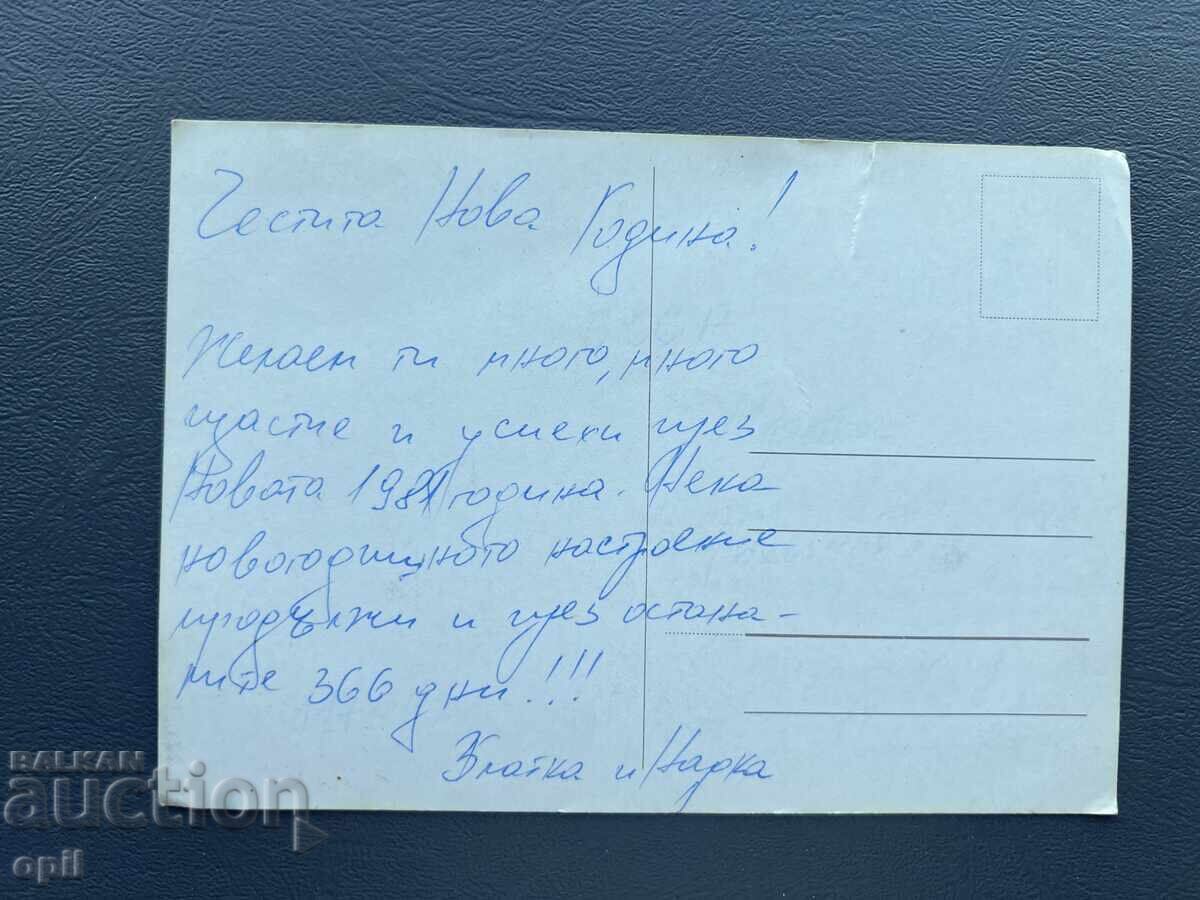 Честита Нова Година!
Желаем ти много, много
щастие и успехи през
Новата година. Нека
новогодишното настроение
продължи и през остана-
лите 366 дни!!!
Златка и Надка
BALKAN
auction
opil